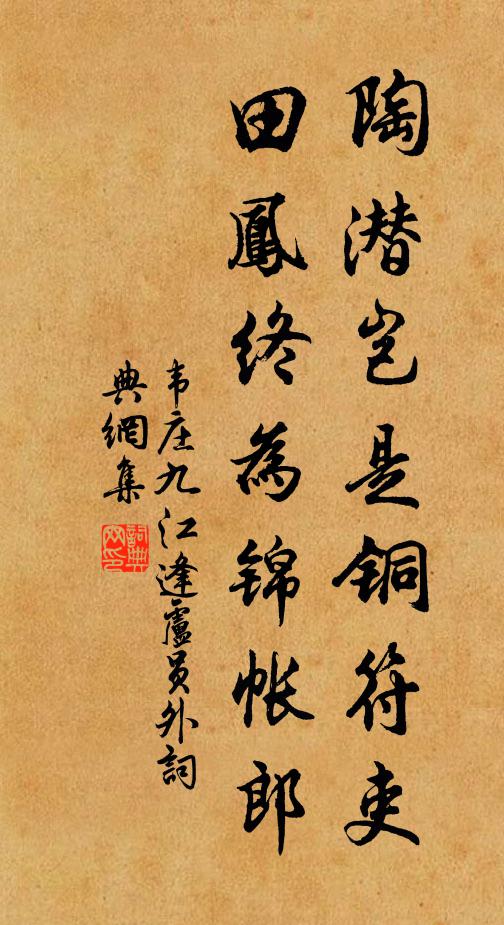 陶潜岂是铜符吏
田鳳终為锦帐郎
韦庄九江逢廬员外詞
典網集
詞典网印